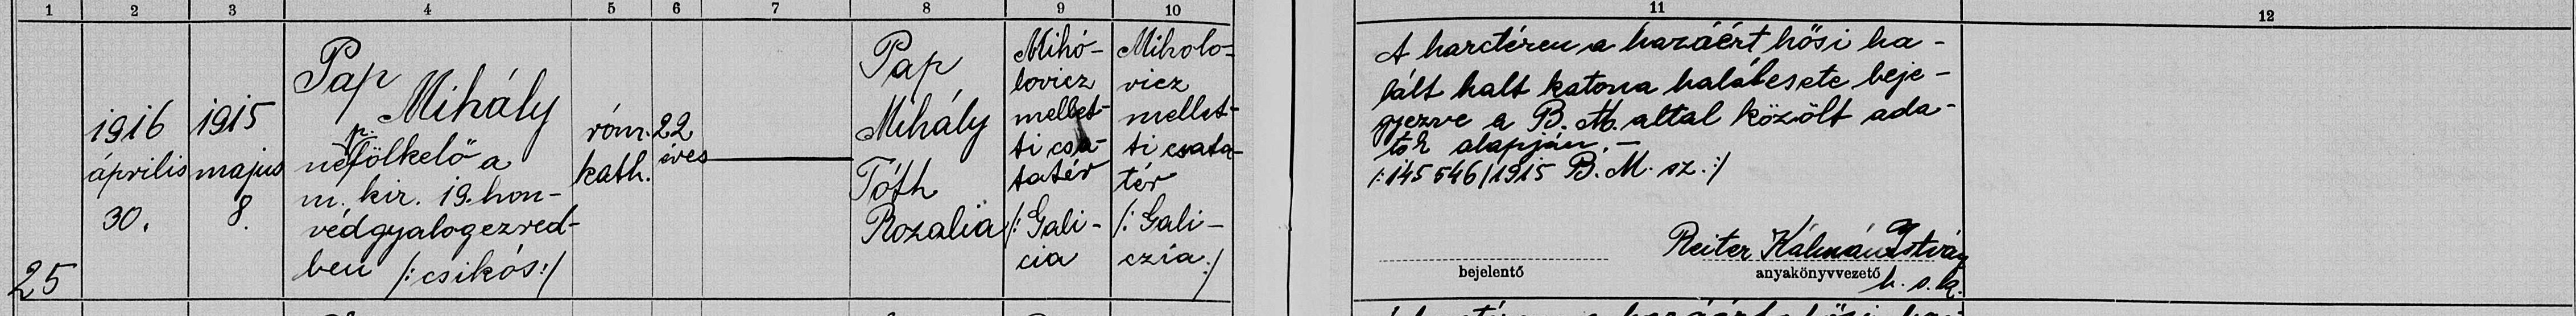 1
2
3
4
5
6
7
8
9
10
11
12
25
1916
április
30.
1915
majus
8.
Pap
Mihály
népfölkelő a
m. kir. 19. hon-
védgyalogezred-
ben /: csikós :/
róm.
kath.
22
éves
Pap
Mihály
Tóth
Rozalia
Mihó-
lovicz
mellet-
ti csa-
tatér
/: Gali-
cia
Miholo-
vicz
mellet-
ti csata-
tér
/: Gali-
czia :/
A harctéren a hazáért hősi ha-
lált halt katona halálesete beje-
gyezve a B. M. által közölt ada-
tok alapján. –
/: 145 546/1915 B. M. sz. :/
Reiter Kálmán István
bejelentő
anyakönyvvezető
h. s. k.